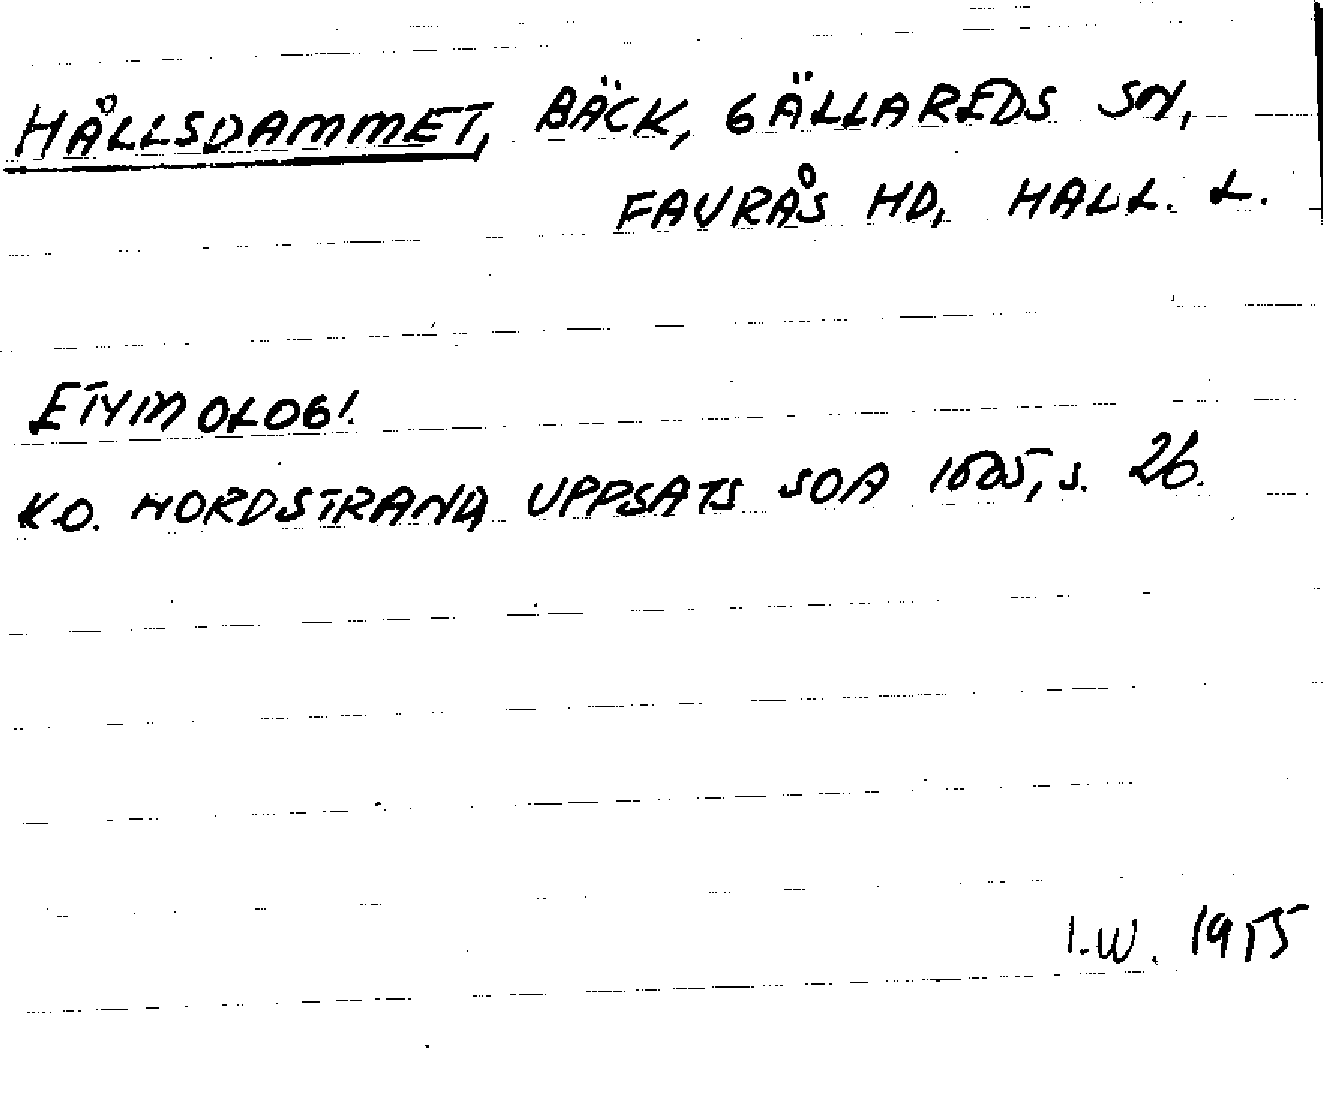 HÅLLSDAMMET, BÄCK, GÄLLAREDS SN,
FAURÅS HD, HALL. L.
ETYMOLOGI.
K.O. NORDSTRAND UPPSATS SOA s. 26.
I.W. 1955